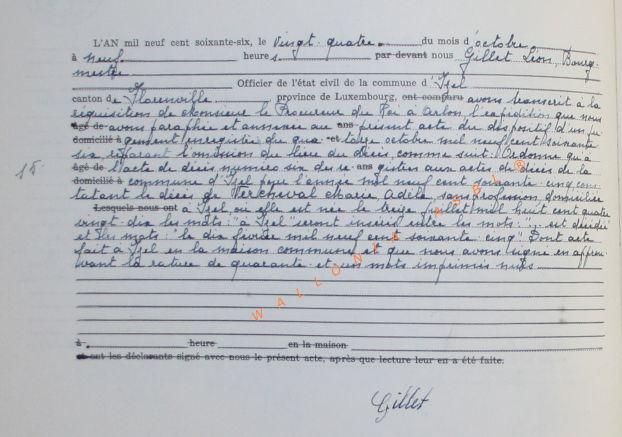 L'AN mil neuf cent soixante-six, le vingt-quatre du mois d'octobre
à neuf heures par devant nous Gillet Léon, Bourg-
mestre
Officier de l'état civil de la commune d'Izel
canton de Florenville province de Luxembourg, ont comparu avons transcrit à la
réquisition de Monsieur le Procureur du Roi à Arlon, l'expédition que nous
âgé de avons paraphée et annexée au ans présent acte du dispositif d'un ju-
domicilié à gement enregistré du qua et torze octobre mil neuf cent soixante
15. six réparant l'omission du lieu du décès, comme suit: Ordonne qu'à
âgé de l'acte de décès numéro six du re ans gistre aux actes de décès de la
domicilié à commune d'Izel pour l'année mil neuf cent soixante-cinq cons-
tatant le décès de Marie Adèle, sans profession, domiciliée
Lesquels nous ont à Izel, où elle est née le treize juillet mil huit cent quatre
vingt-dix les mots: "à Izel" seront insérés entre les mots: "... est décédée
et les mots: "le dix février mil neuf cent soixante-cinq" Dont acte
fait à Izel en la maison communale et que nous avons signé en approu-
vant la rature de quarante et un mots imprimés nuls
à heure en la maison
et ont les déclarants signé avec nous le présent acte, après que lecture leur en a été faite.
Gillet